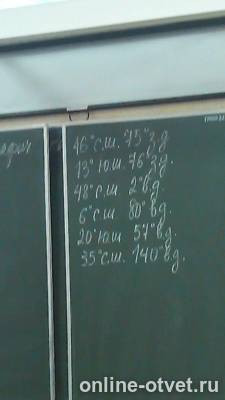 46°с.ш. 75°з.д
13°ю.ш. 76°з.д.
48°с.ш 2°в.д.
6°с.ш 80°в.д.
20°ю.ш. 57°в.д.
35°с.ш. 140°в.д.
online-otvet.ru